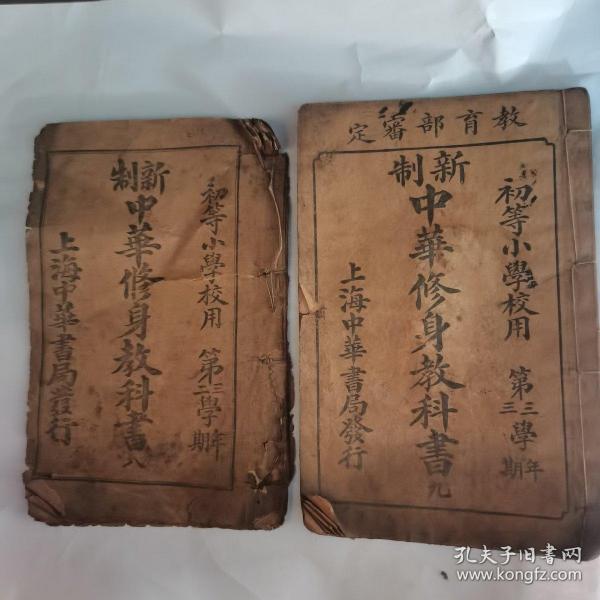 初等小學校用 第三二學年期
新制中華修身教科書 八
上海中華書局發行
教育部審定
初等小學校用 第三三學年期
新制中華修身教科書 九
上海中華書局發行
孔夫子旧书网
www.kongfz.com